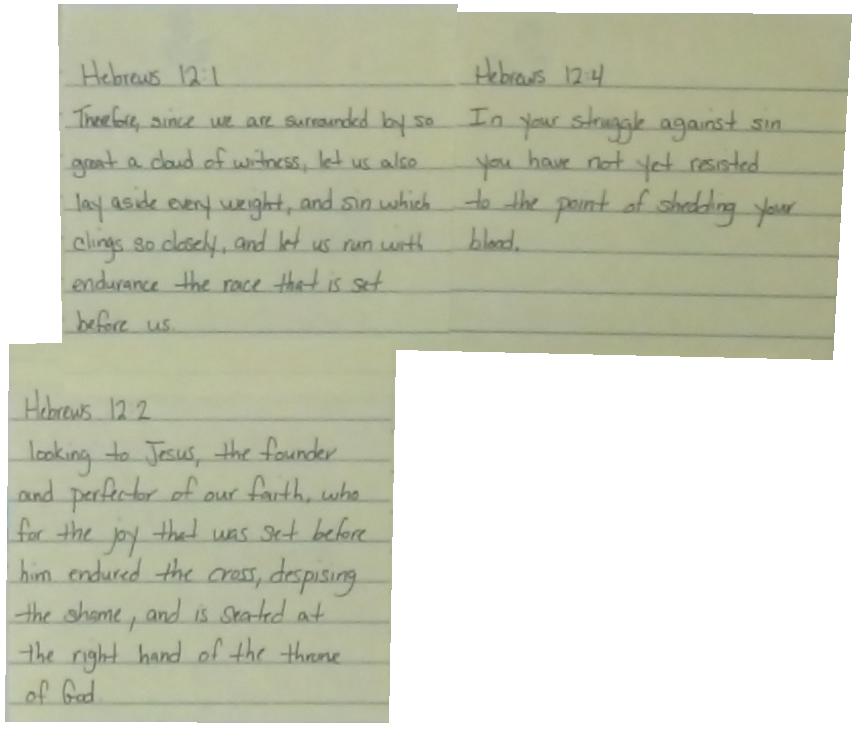 Hebrews 12:1
Therefore, since we are surrounded by so
great a cloud of witness, let us also
lay aside every weight, and sin which
clings so closely, and let us run with
endurance the race that is set
before us.
Hebrews 12:4
In your struggle against sin
you have not yet resisted
to the point of shedding your
blood.
Hebrews 12:2
looking to Jesus, the founder
and perfector of our faith, who
for the joy that was set before
him endured the cross, despising
the shame, and is seated at
the right hand of the throne
of God.